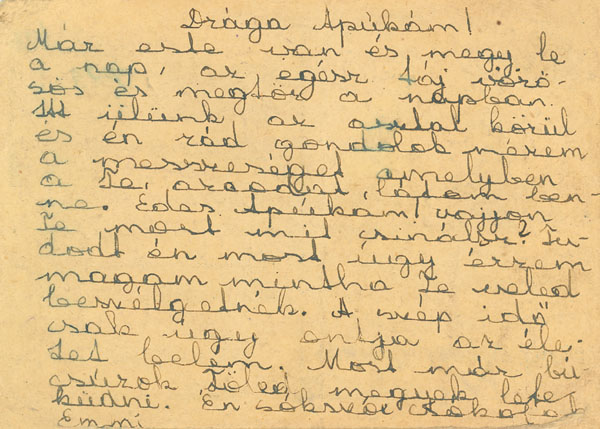 Drága Apúkám!
Már este van és megy le
a nap, az egész táj vörö-
sös és megtör a napban.
Itt ülünk az asztal körül
és én rád gondolok nézem
a messzeséget amelyben
a Te, arcodat látom ben-
ne. Édes Apúkám! vajjon
Te most mit csinálsz? Tu-
dod én most úgy érzem
magam mintha Te veled
beszélgetnék. A szép idő
csak úgy ontja az éle-
tet belém. Most már bú-
csúzok Tőled megyek lefe-
küdni. Én sokszor csókolok
Emmi